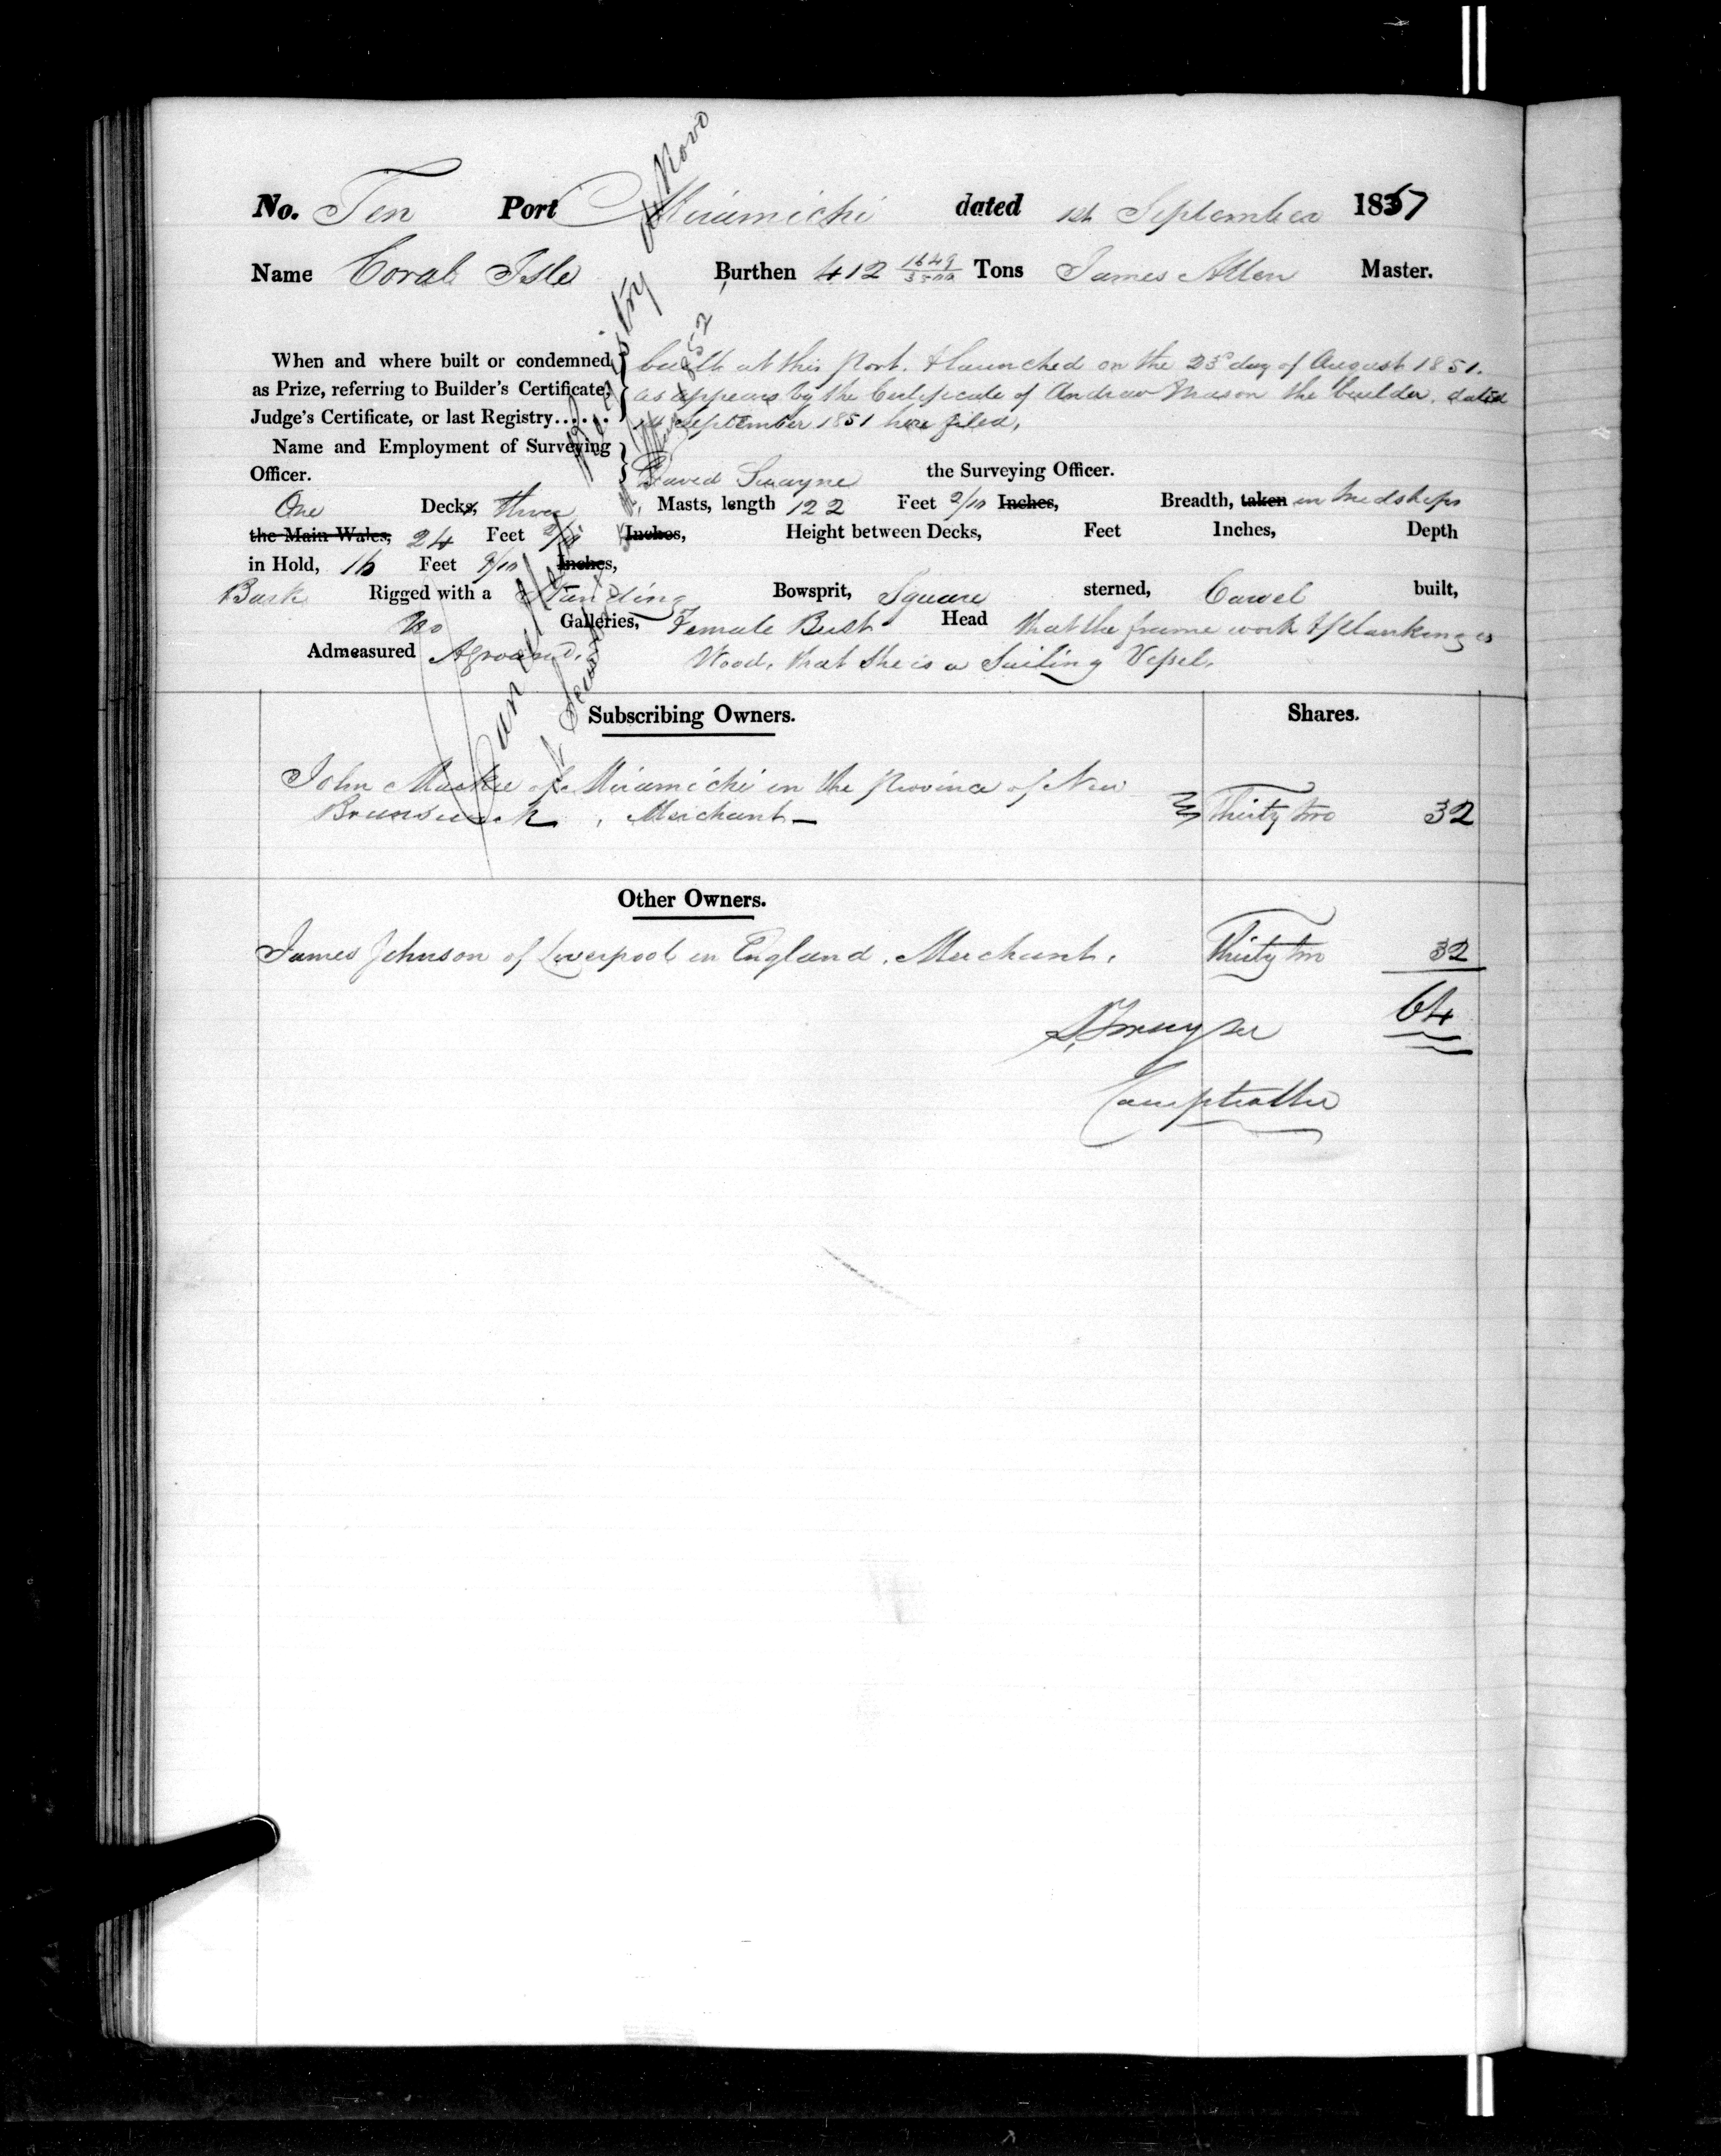 No. Ten Port Miramichi dated 1st September 1851
Name Coral Isle Burthen 412 1649/3500 Tons James Allen Master.
When and where built or condemned built at this Port. & launched on the 23d day of August 1851.
as Prize, referring to Builder's Certificate, as appears by the Certificate of Andrew Mason the builder. dated
Judge's Certificate, or last Registry...... 1st September 1851 here filed.
Name and Employment of Surveying
Officer. David Swayne the Surveying Officer.
One Decks, three Masts, length 122 Feet 2/10 Inches, Breadth, taken in Midships
the Main Wales, 24 Feet 2/10 Inches, Height between Decks, Feet Inches, Depth
in Hold, 16 Feet 9/10 Inches,
Bark Rigged with a Standing Bowsprit, Square sterned, Carvel built,
No Galleries, Female Bust Head that the frame work & planking is
Admeasured Aground. Wood, that she is a Sailing Vessel.
Cancelled Registry de Novo
1852
Subscribing Owners. Shares.
John Mackie of Miramichi in the Province of New
Brunswick, Merchant Thirty two 32
Other Owners.
James Johnson of Liverpool in England. Merchant. Thirty two 32
64
Comptroller